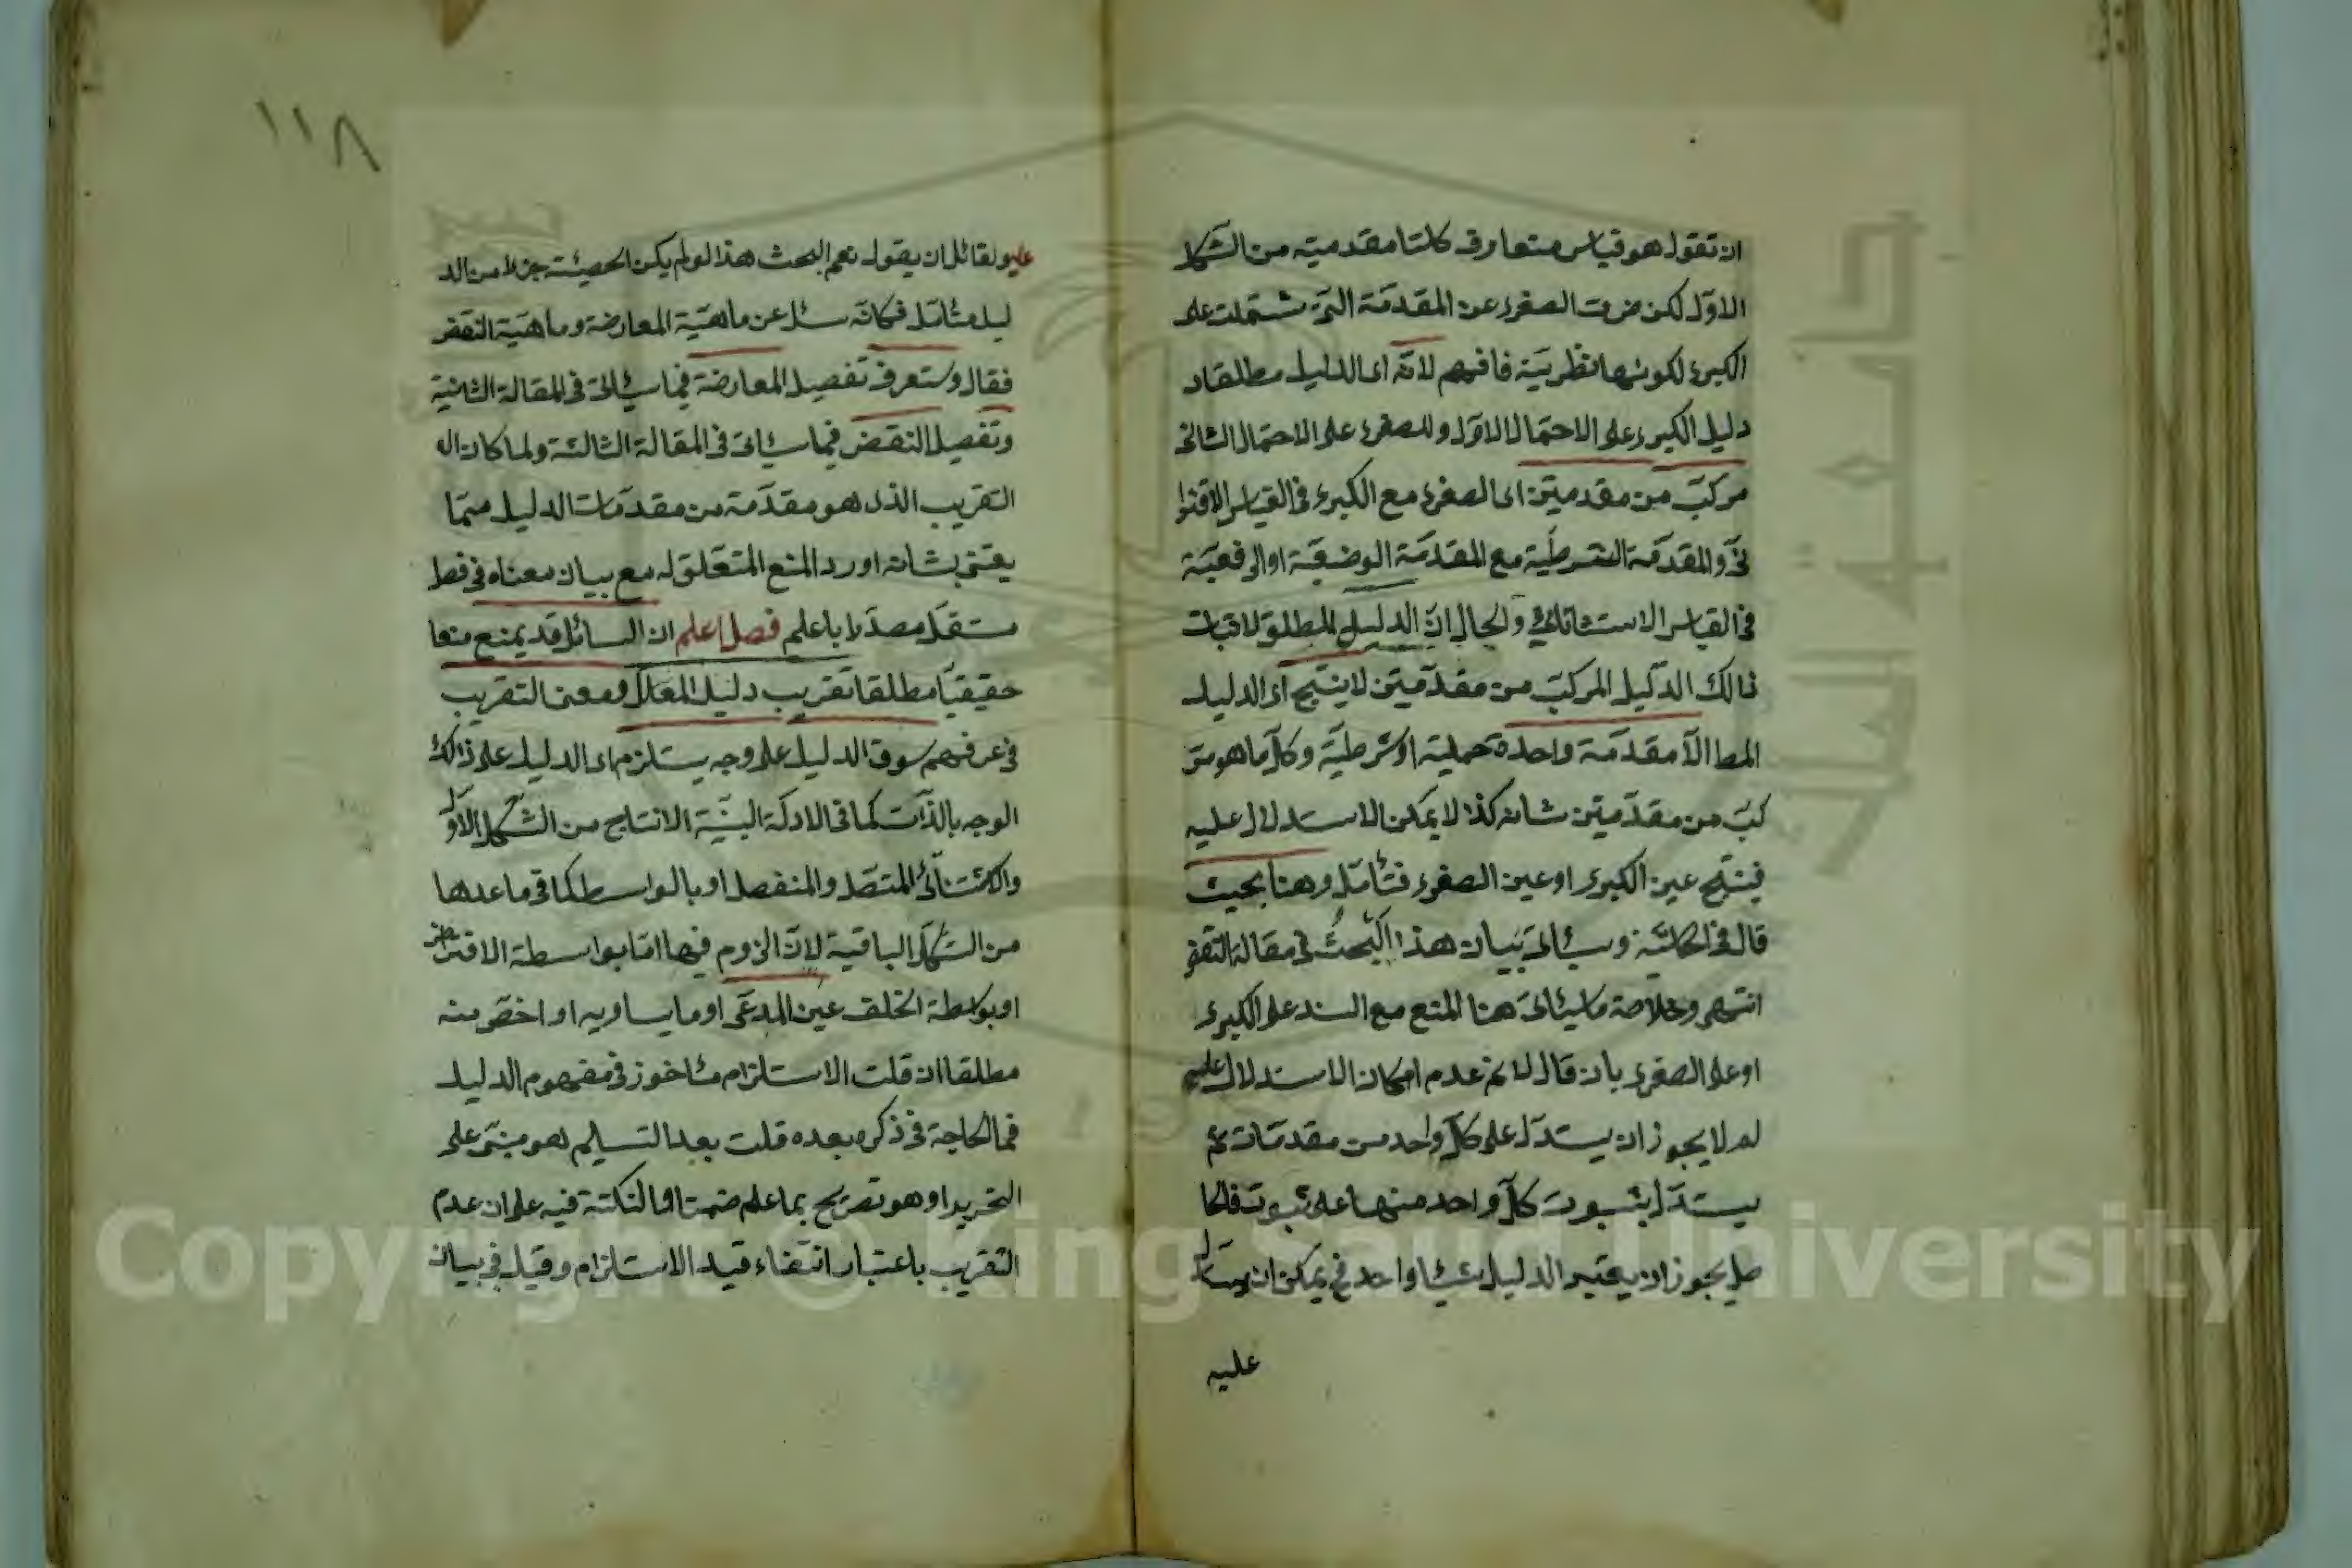 ان تقول هو قياس متعارف كلتا مقدمتيه من الشكل
الاوّل لكن ضرت الصغرى عن المقدمة التى شتملت على
الكبرى لكونها نظريّة فافهم لانّه اى الدليل مطلقاد
دليل الكبرى على الاحتمال الاوّل وللصغرى على الاحتمال الثانى
مركبّ من مقدمتين اى الصغرى مع الكبرى فى القياس الاقترا
نىّ والمقدّمة الشرطيّة مع المقدّمة الوضعيّة اوالرفعيّة
فى القياس الاستثنائى والحال انّ الدليل المطلق لاثبات
ذالك الدّليل المركبّ من مقدّمتين لا ينتج اى الدليل
المط الاّ مقدّمة واحدة حملية اوشرطيّة وكلّ ما هو مر
كبّ من مقدّمتين شانه كذا لا يمكن الاستدلال عليه
فينتج عين الكبرى او عين الصغرى فتأمّل وهنا بحيث
قال فى الحاشّة وسيأتى بيان هذا البحث فى مقالة النقض
انتهى وخلاصة ما سيأتى هنا المنع مع السند على الكبرى
او على الصغرى بان قال لا نم عدم امكان الاستدلال عليه
لم لا يجوز ان يستدلّ على كلّ واحد من مقدمات ثم
يستدلّ بثبوت كلّ واحد منها على ثبوت فالحا
صل يجوز ان يعتبر الدليل شيئا واحد فح يمكن ان يستدل
عليه
عليه ولقائل ان يقول نعم البحث هذا لو لم يكن الحيثية جزلا من الد
ليل متأمّل فكانّه سئل عن ماهيّة المعارضة وماهيّة النقض
فقال وستعرف تفصيل المعارضة فيما سيأتى فى المقالة الثانية
وتفصيل النقض فيما سيأتى فى المقالة الثالثة ولما كان ال
التقريب الذى هو مقدّمة من مقدّمات الدليل ممّا
يعتنى بشانه اورد المنع المتعلّق له مع بيان معناه فى فصل
مستقلّ مصدّرا باعلم فصل اعلم ان السائل قد يمنع منعا
حقيقيّا مطلقا تقريب دليل المعلّل ومعنى التقريب
فى عرفهم سوق الدليل على وجه يستلزم اى الدليل على ذالك
الوجه بالذّات كما فى الادلّة البيّنة الانتاج من الشكل الاوّل
والاستثنائى المتصّل والمنفصل او بالواسطة كما فى ما عداها
من الشكّل الباقية لانّ الزوم فيها امّا بواسطة الافتراض
او بواسطة الخلف عين المدعّى او ما يساويه او اخصّ منه
مطلقا ان قلت الاستلزام مأخوز فى مفهوم الدليل
فما الحاجة فى ذكره بعده قلت بعد التسليم هو مبنىّ على
التجريد او هو تصريح بما علم ضمنا والنكتة فيه على ان عدم
التقريب باعتبار انتفاء قيد الاستلزام وقيل فى بيان
١١٨
Copyright © King Saud University
جامعة الملك